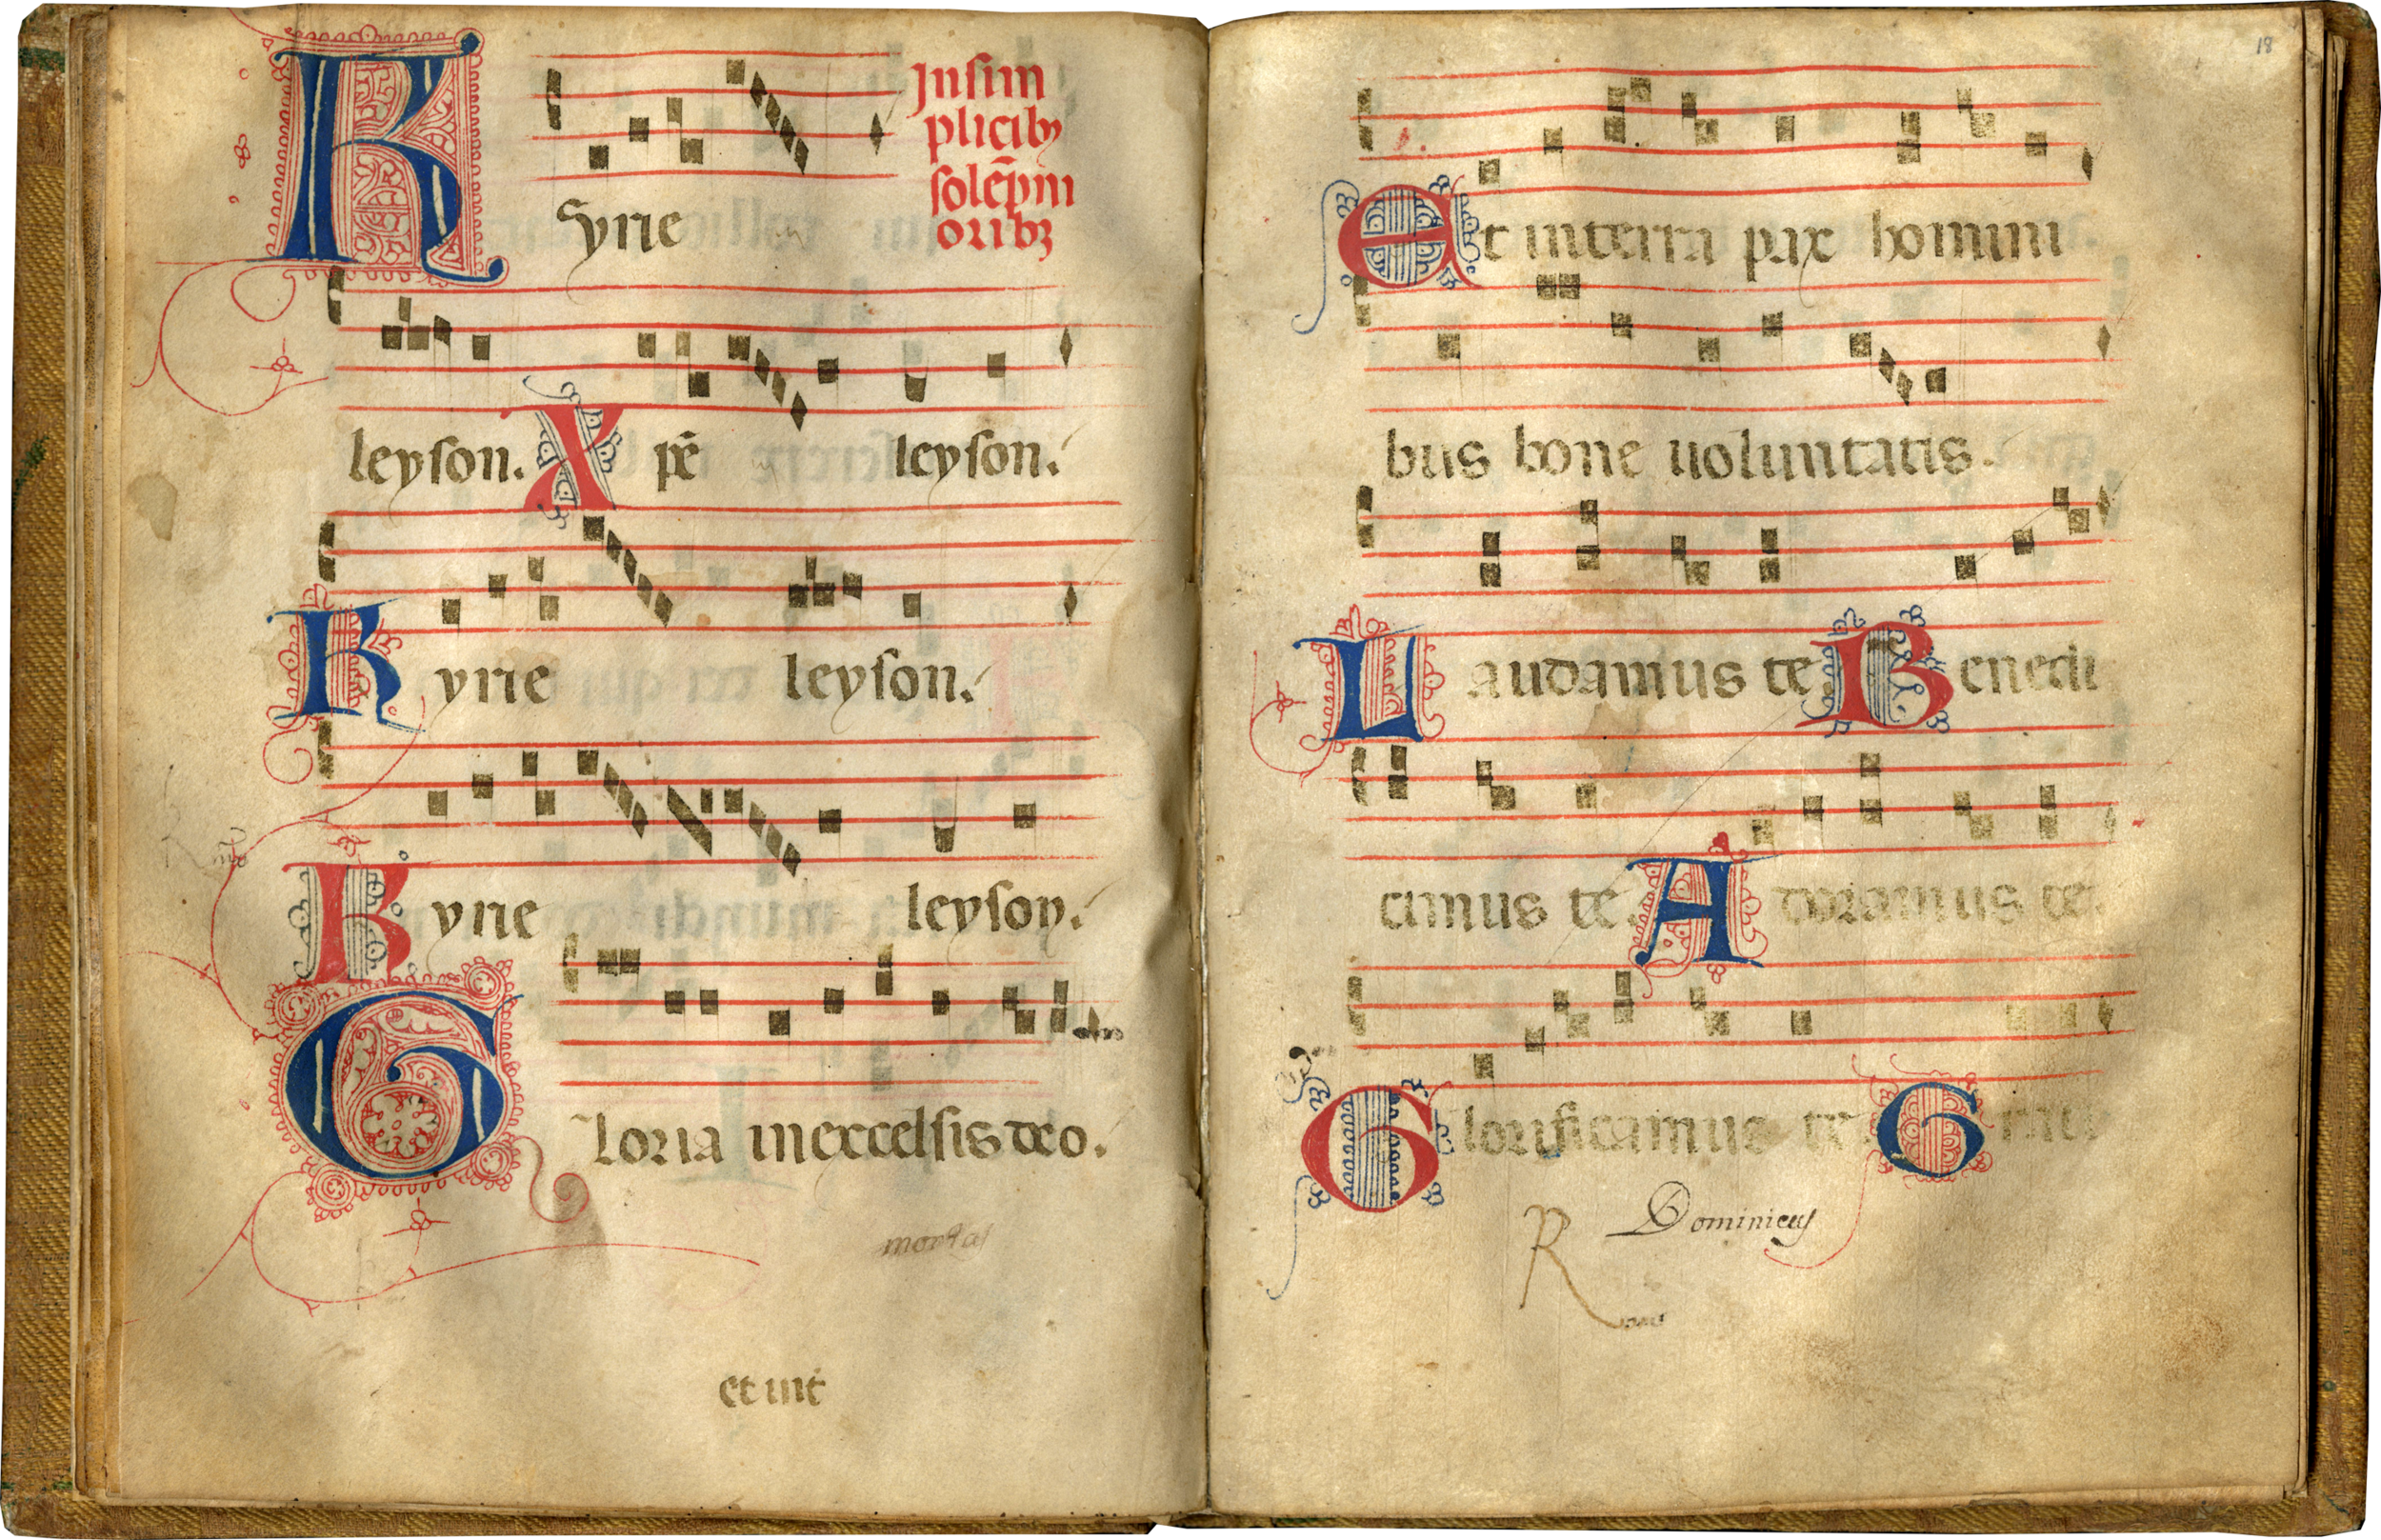 Kyrie
Jnsim
plicibꝫ
solēpni
oribꝫ
leyson. Xpē leyson.
Kyrie leyson.
Kyrie leyson.
Gloria in excelsis deo.
mortas
et int
18
Et in terra pax homini
bus bone uoluntatis.
Laudamus te. Benedi
cimus te. Adoramus te.
Glorificamus te. Grati
Dominicus
R